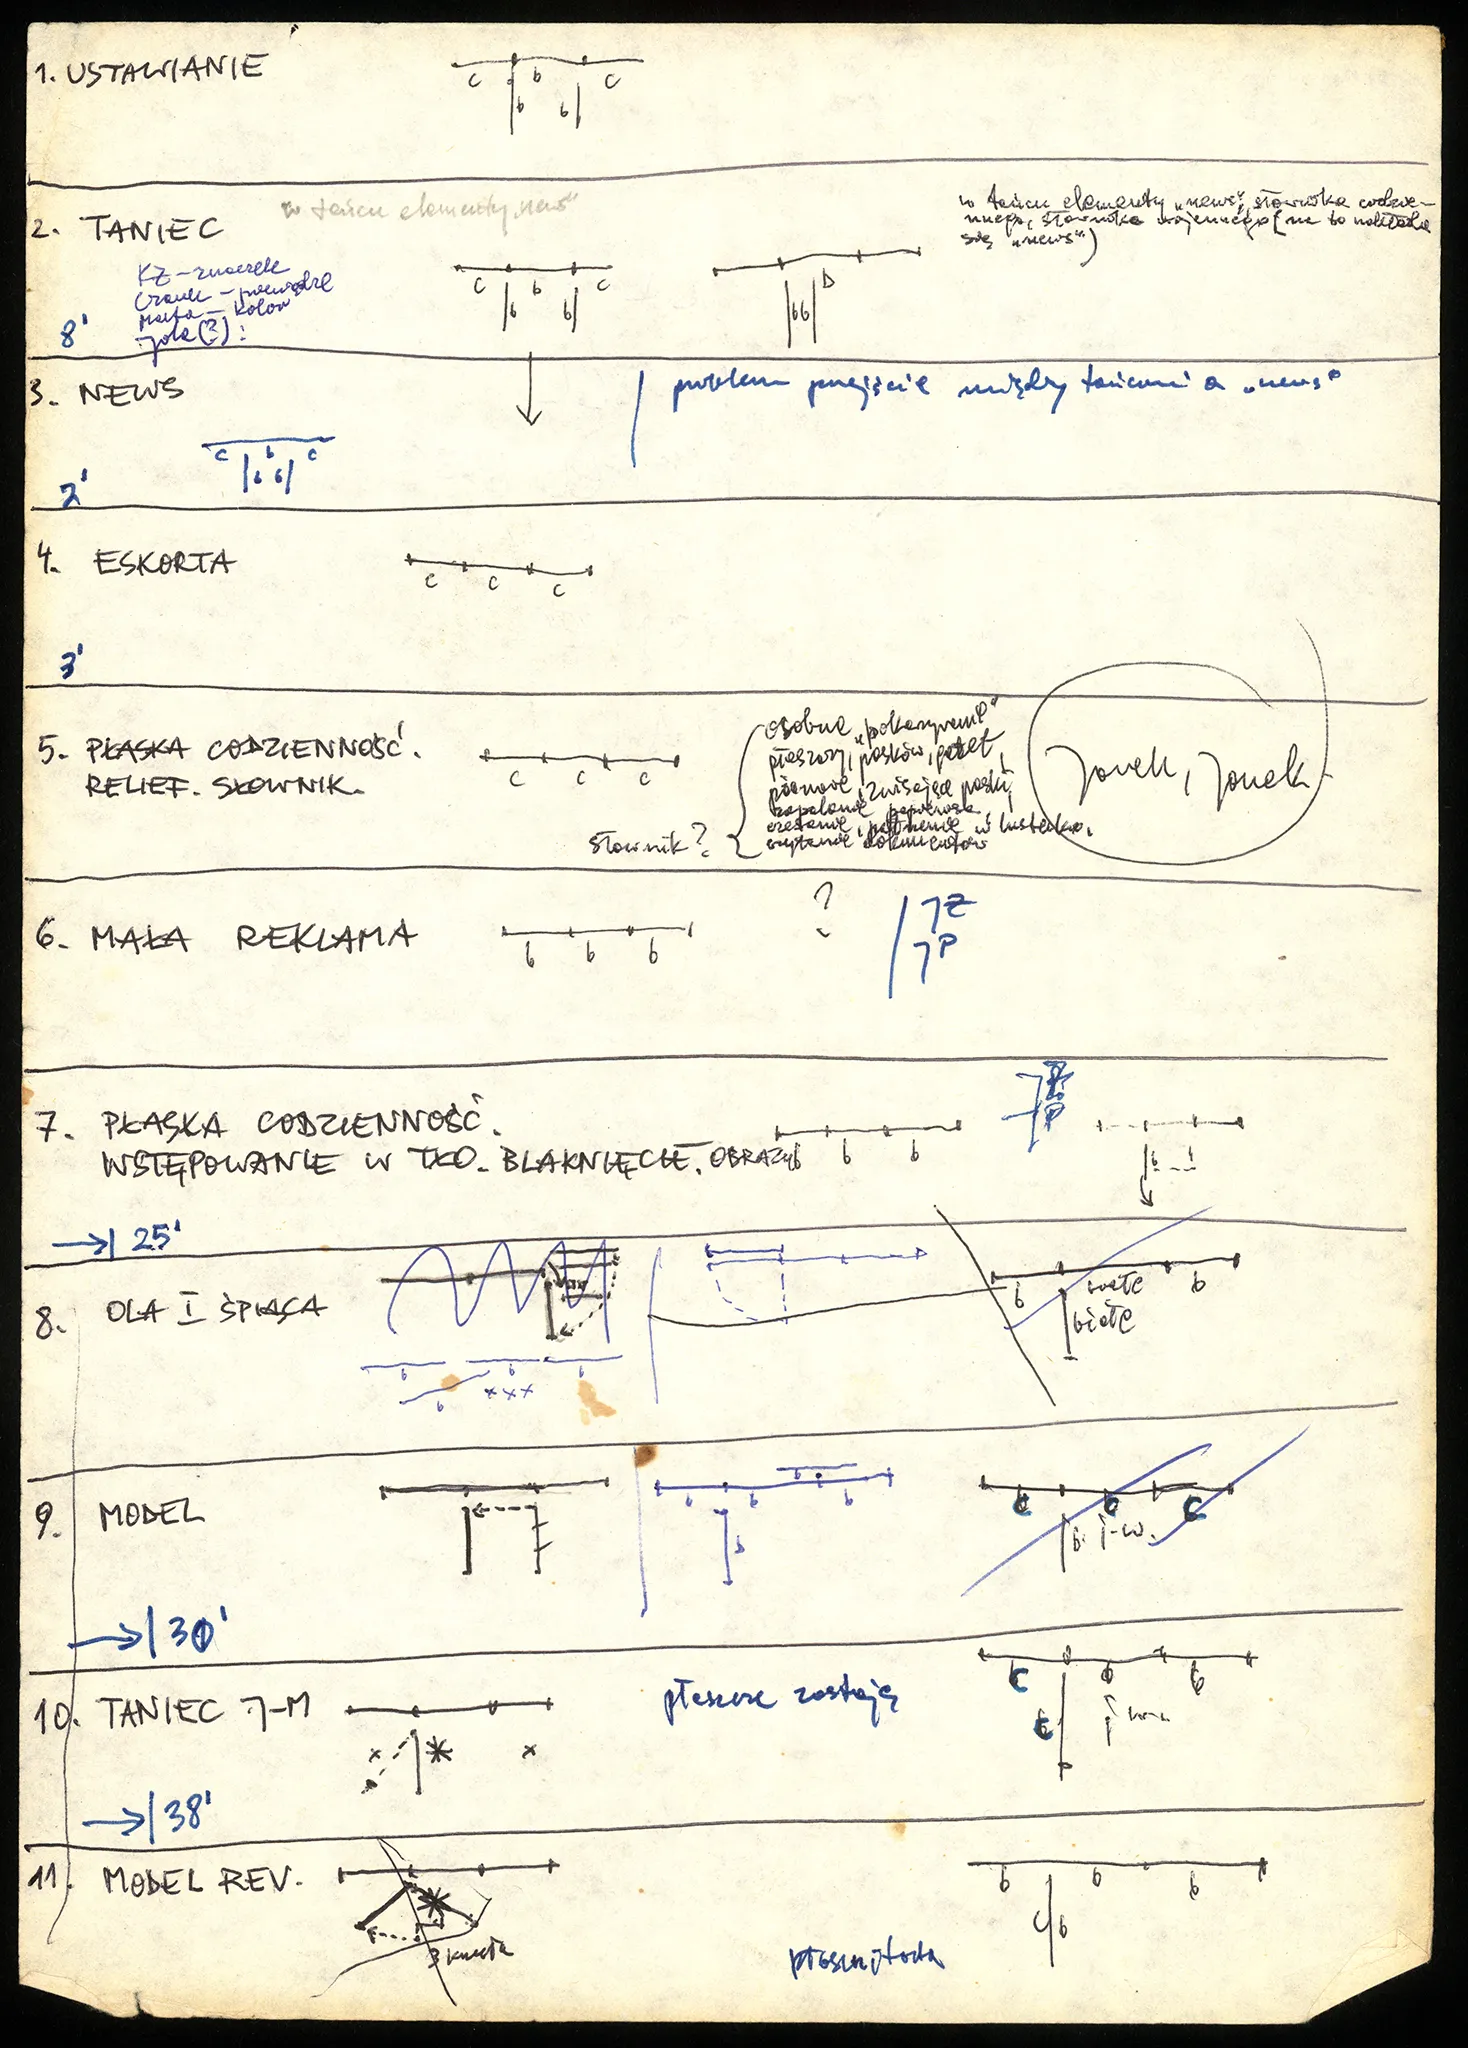 1. USTAWIANIE
c b c
b b
2. TANIEC
w tańcu elementy „news”
w tańcu elementy „news”, słownika codzie-
nnego, słownika wojennego (na to nakłada
się „news”)
KZ – znaczek
c b c
b b
b b
8'
3. NEWS
problem przejście między tańcami a „news”
c b c
b b
2'
4. ESKORTA
c c c
3'
5. PŁASKA CODZIENNOŚĆ.
RELIEF. SŁOWNIK.
c c c
słownik?
osobne „pokazywanie”
płaszczy, pasków, gazet,
pionowe, zwisające paski
zapalanie papierosa
czesanie, patrzenie w lusterko,
czytanie dokumentów
Janek, Janek
6. MAŁA REKLAMA
b b b
?
JZ
JP
7. PŁASKA CODZIENNOŚĆ.
WSTĘPOWANIE W TŁO. BLAKNIĘCIE. OBRAZY
b b b
b
→| 25'
8. OLA I ŚPIĄCA
b b b
b xxx
b białe b
białe
9. MODEL
b b b
b
c c c
b
→| 30'
10. TANIEC J-M
x x
płaszcze zostają
c b c
c
→| 38'
11. MODEL REV.
3 krzesła
b b b
c b